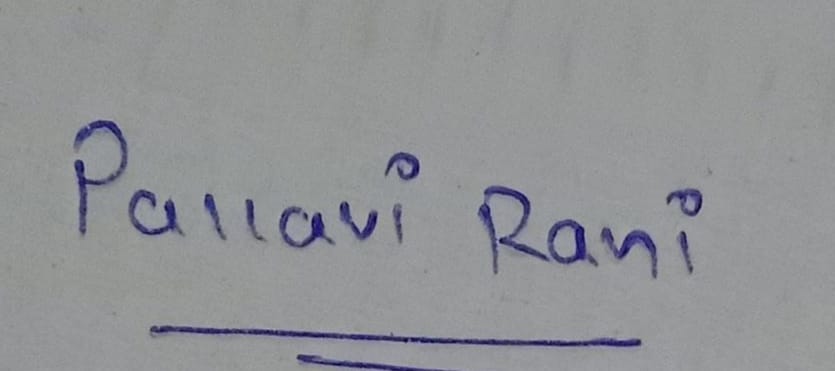 Pallavi Rani